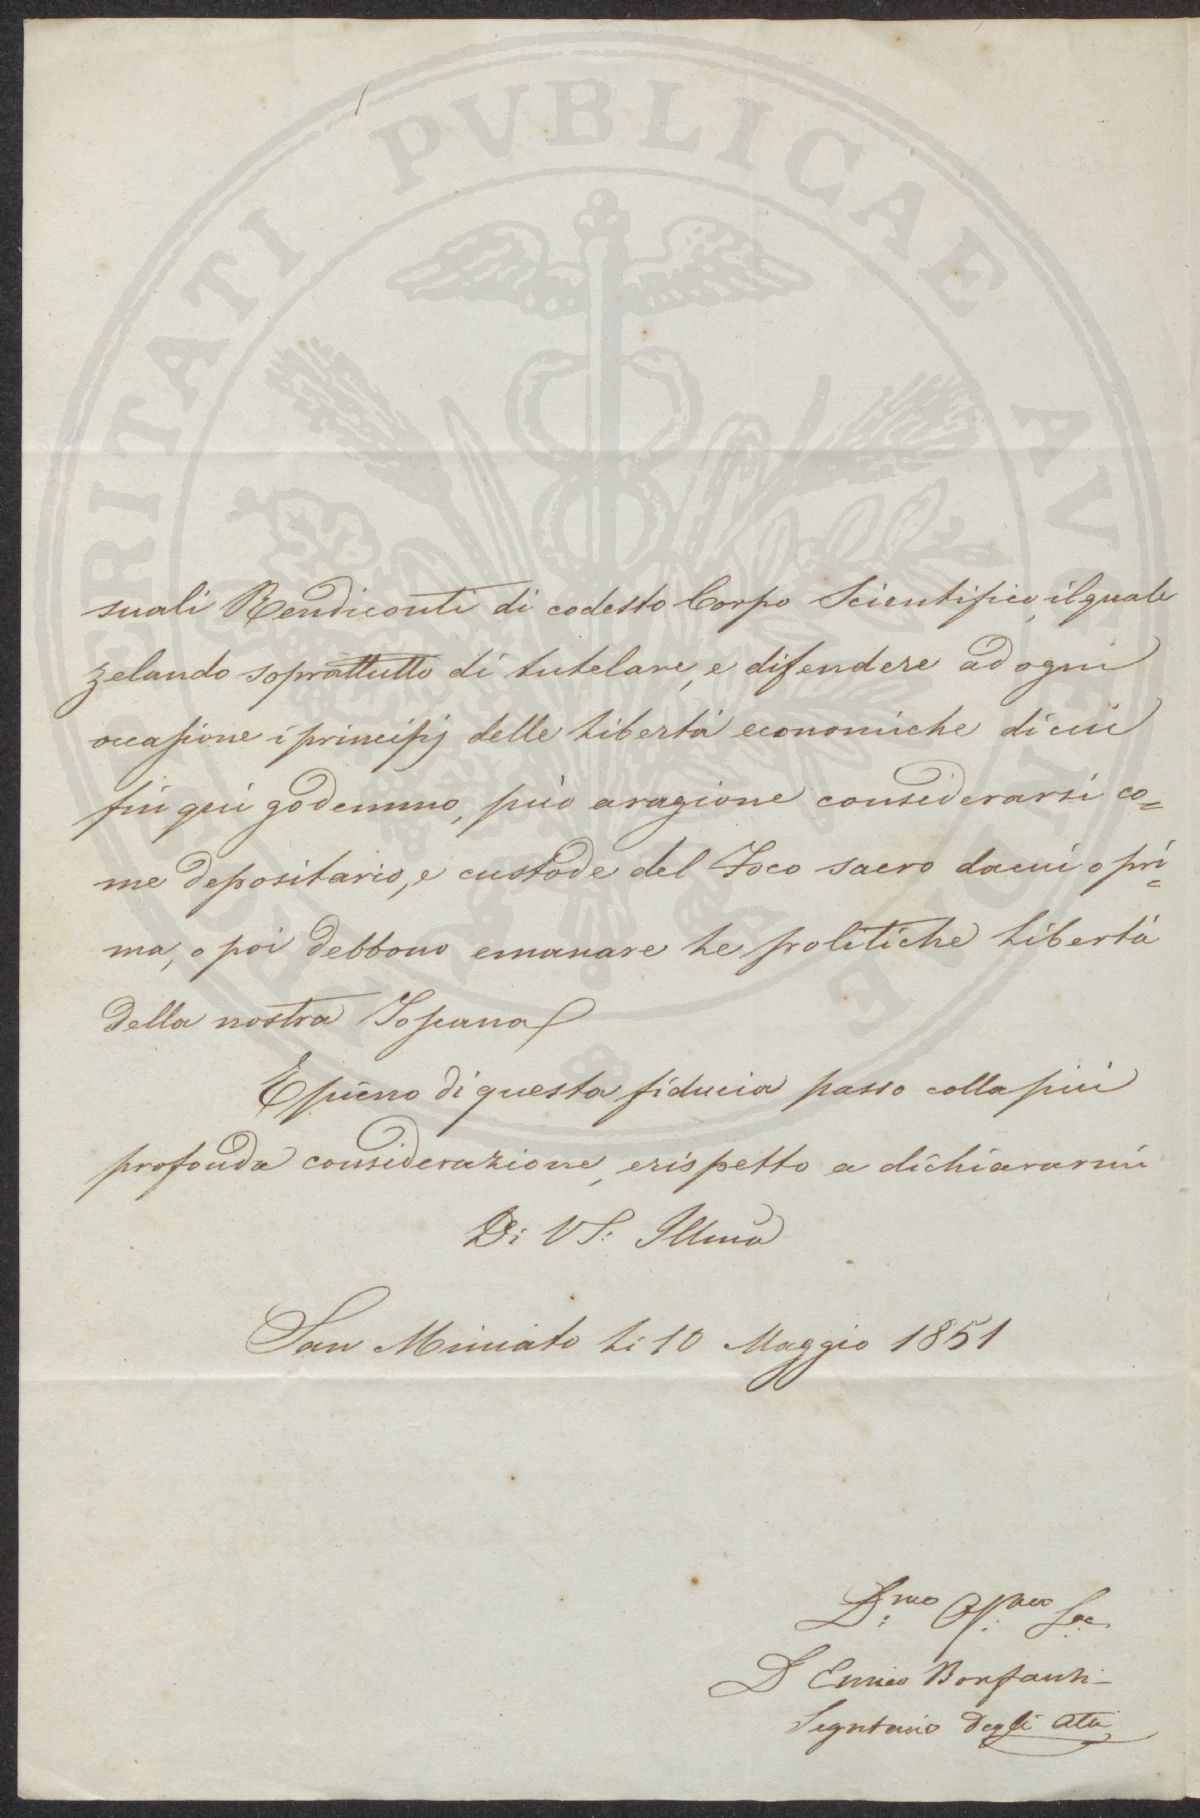 PROSPERITATI PVBLICAE AVGENDAE
suali Rendiconti di codesto Corpo Scientifico, il quale
zelando soprattutto di tutelare, e difendere ad ogni
occasione i principj delle Libertà economiche di cui
fin quì godemmo, può a ragione considerarsi co=
me depositario, e custode del Foco sacro da cui o pri=
ma, o poi debbono emanare le politiche Libertà
della nostra Toscana
E pieno di questa fiducia passo colla più
profonda considerazione, e rispetto a dichiararmi
Di VS: Illma
San Miniato li 10 Maggio 1851
D:mo Obb:mo Ser
D Enrico Bonfanti
Segretario degli Atti